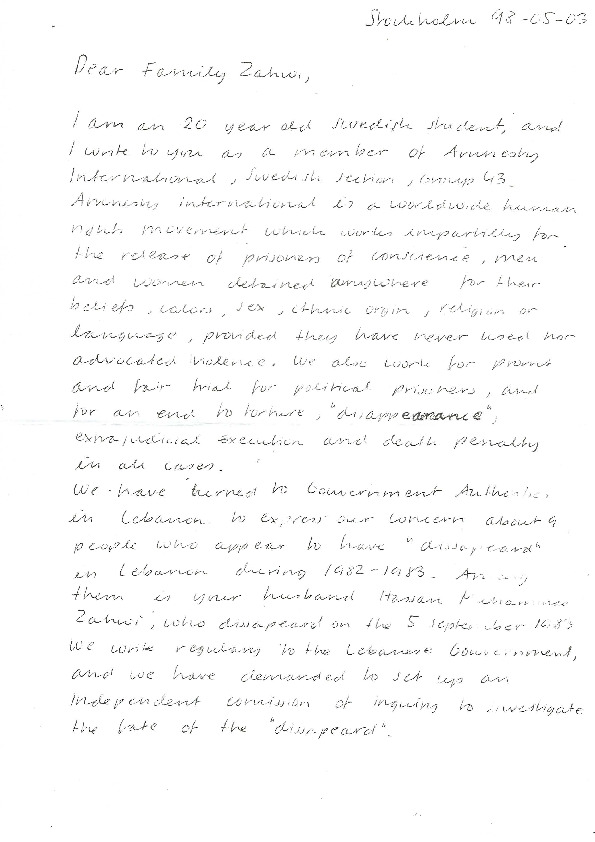 Stockholm 98-05-03
Dear Family Zahwi,
I am an 20 year old Swedish student, and
I write to you as a member of Amnesty
International, Swedish section, Group 43.
Amnesty international is a worldwide human
right movement which works impartilly for
the release of prisoners of conscience, men
and women detained anywhere for their
beliefs, colors, sex, ethnic orgin, religion or
language, provided they have never used nor
advocated violence. We also work for promt
and fair trial for political prisoners, and
for an end to torture, "disappearance",
extrajudicial execution and death penalty
in all cases.
We have turned to Gouvernment Authorties
in Lebanon to express our concern about 9
people who appear to have "disapeard"
in Lebanon during 1982-1983. Among
them is your husband Hassan Muhammed
Zahwi, who disapeard on the 5 September 1983
We write regulary to the Lebanese Gouvernment,
and we have demanded to set up an
Independent comission of inquiry to investigate
the fate of the "disapeard".